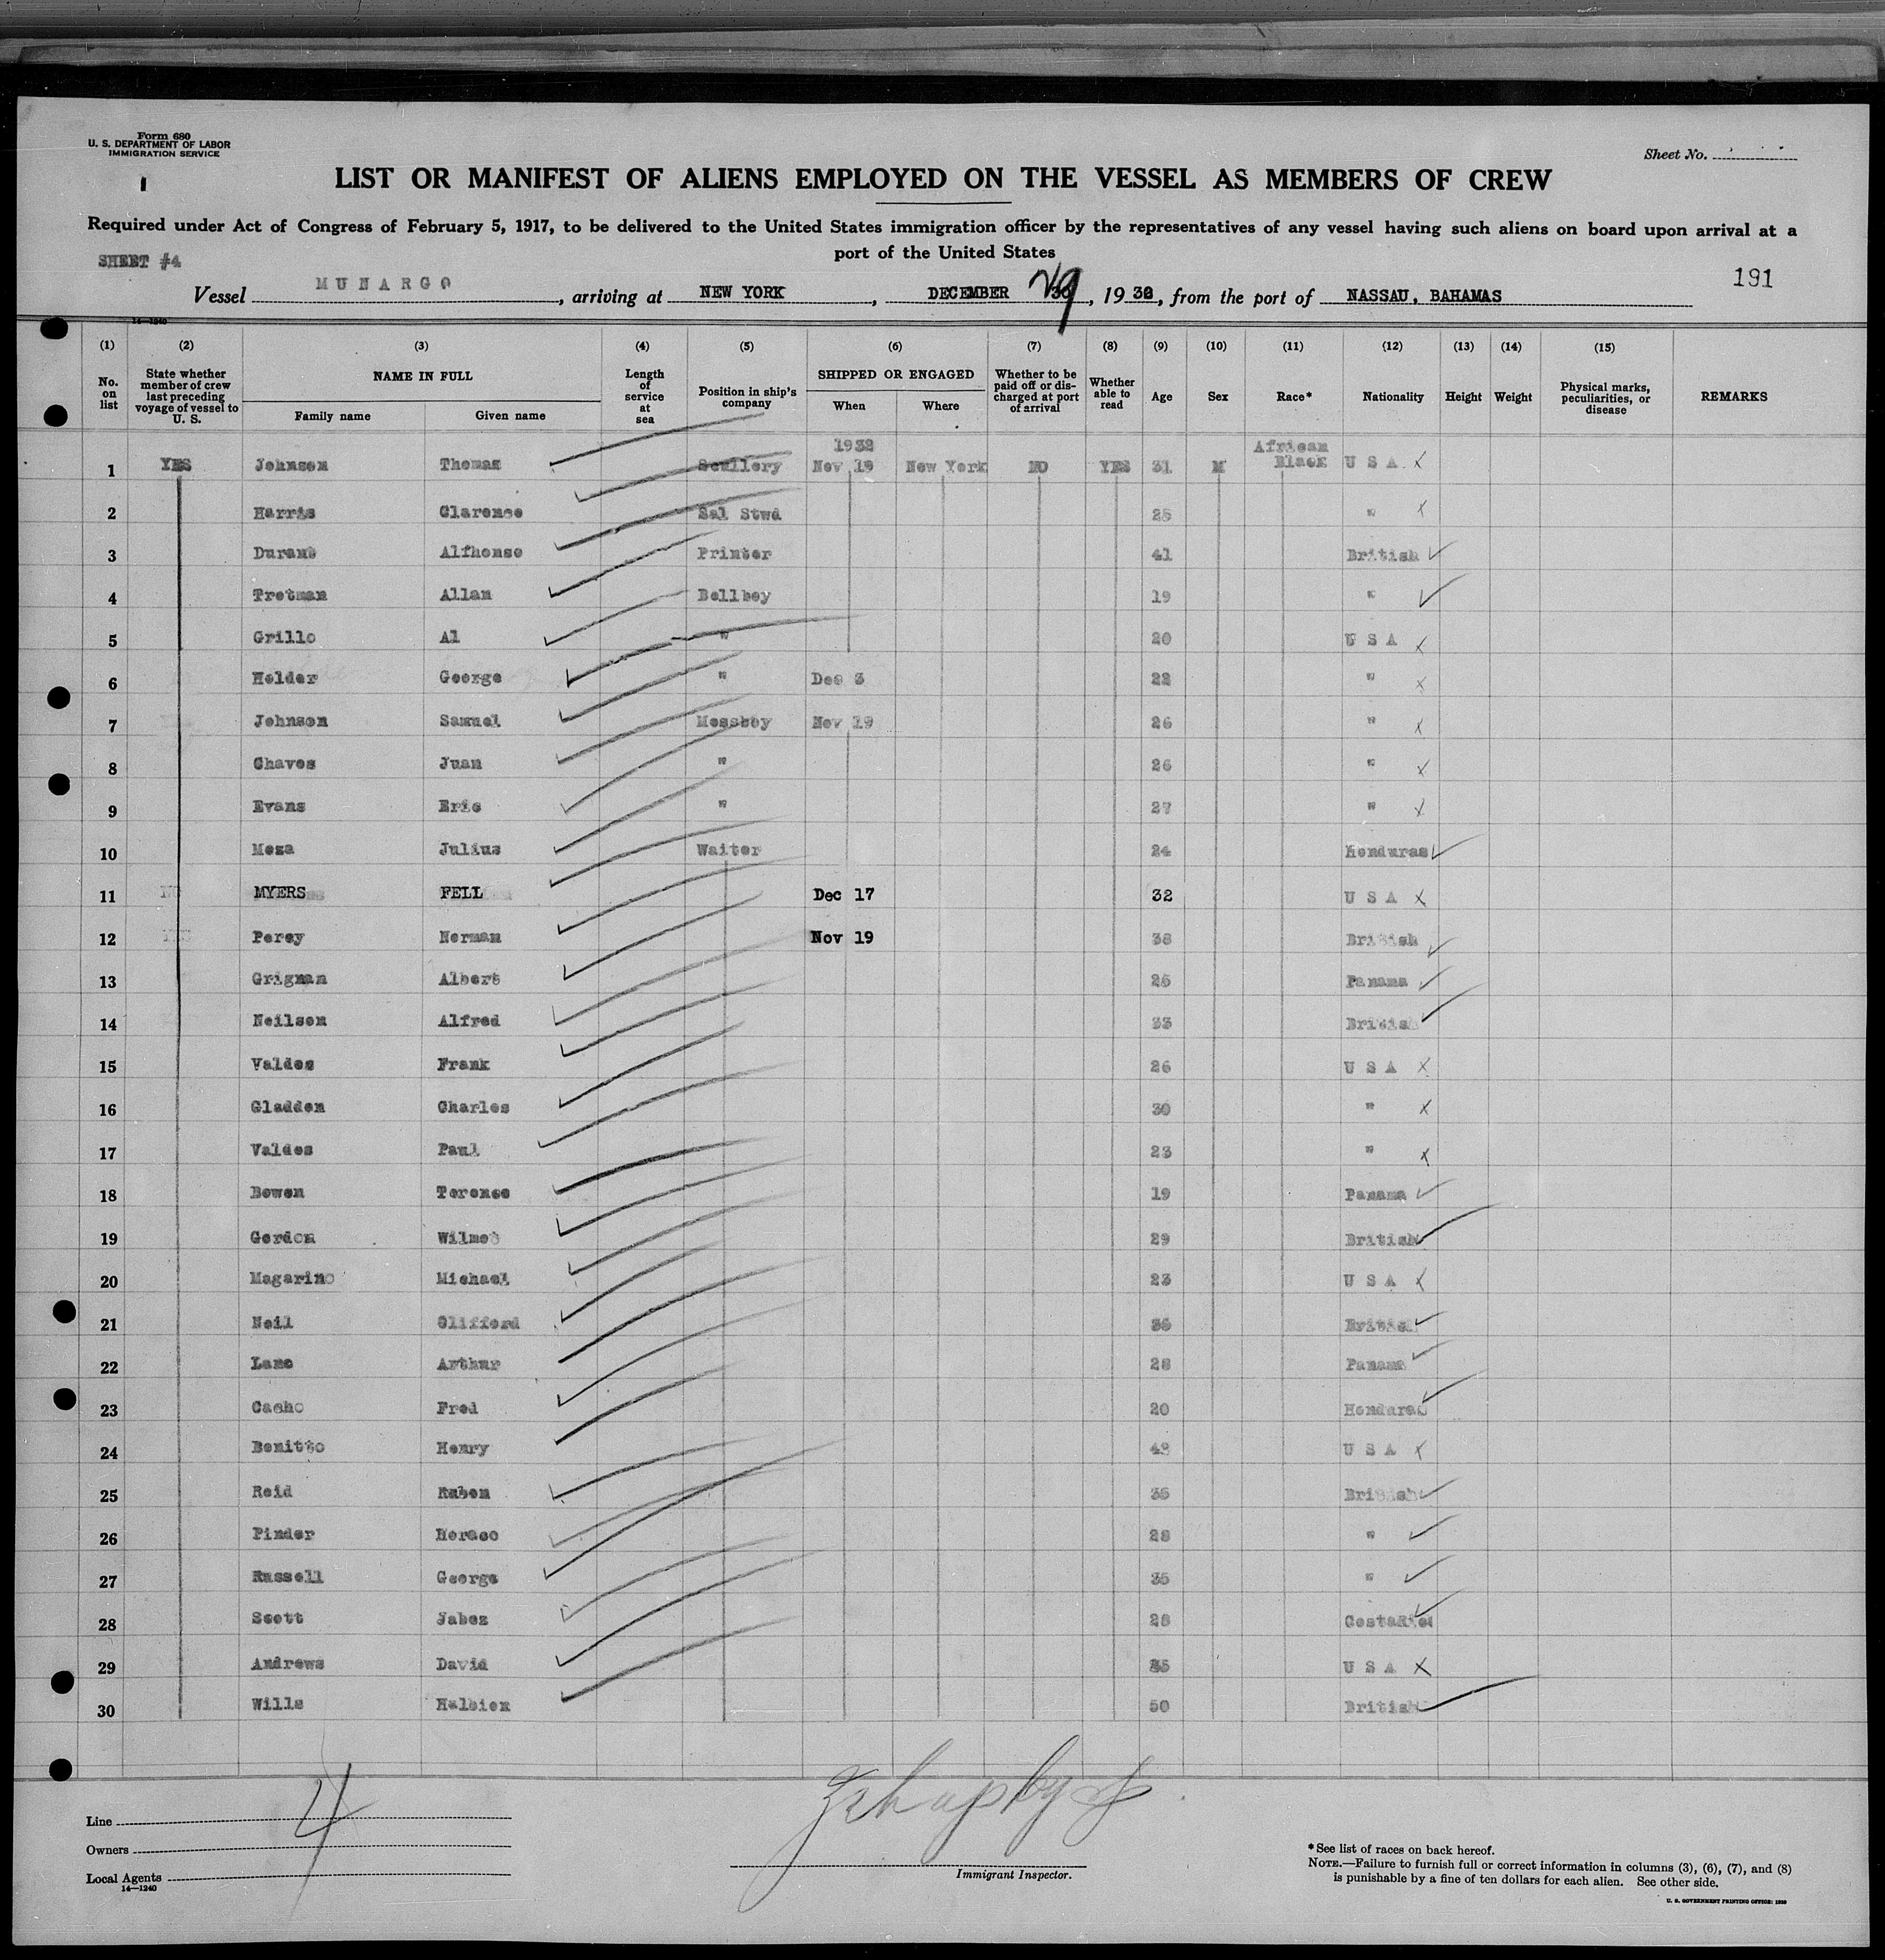 Form 680
U. S. DEPARTMENT OF LABOR
IMMIGRATION SERVICE
Sheet No.
LIST OR MANIFEST OF ALIENS EMPLOYED ON THE VESSEL AS MEMBERS OF CREW
Required under Act of Congress of February 5, 1917, to be delivered to the United States immigration officer by the representatives of any vessel having such aliens on board upon arrival at a
port of the United States
SHEET #4
191
Vessel MUNARGO, arriving at NEW YORK, DECEMBER 29, 1932, from the port of NASSAU, BAHAMAS
14—1240
(1) (2) (3) (4) (5) (6) (7) (8) (9) (10) (11) (12) (13) (14) (15)
No. on list State whether member of crew last preceding voyage of vessel to U. S. NAME IN FULL Family name Given name Length of service at sea Position in ship's company SHIPPED OR ENGAGED When Where Whether to be paid off or discharged at port of arrival Whether able to read Age Sex Race* Nationality Height Weight Physical marks, peculiarities, or disease REMARKS
1932 African
1 YES Johnson Thomas Scullery Nov 19 New York NO YES 31 M Black U S A x
2 Harris Clarence Sal Stwd 25 " x
3 Durant Alfhonse Printer 41 British ✓
4 Trotman Allan Bellboy 19 " ✓
5 Grillo Al " 20 U S A x
6 Holder George " Dec 3 22 " x
7 Johnson Samuel Messboy Nov 19 26 " x
8 Chaves Juan " 26 " x
9 Evans Eric " 27 " x
10 Meza Julius Waiter 24 Honduras ✓
11 NO MYERS FELL Dec 17 32 U S A x
12 YES Percy Norman Nov 19 38 British ✓
13 Grignan Albert 25 Panama ✓
14 Neilson Alfred 33 British ✓
15 Valdes Frank 26 U S A x
16 Gladden Charles 30 " x
17 Valdes Paul 23 " x
18 Bowen Terence 19 Panama ✓
19 Gordon Wilmot 29 British ✓
20 Magarino Michael 23 U S A x
21 Neil Clifford 36 British ✓
22 Lane Arthur 28 Panama ✓
23 Cacho Fred 20 Honduras ✓
24 Benitto Henry 43 U S A x
25 Reid Ruben 35 British ✓
26 Pinder Horace 28 " ✓
27 Russell George 35 " ✓
28 Scott Jabez 28 CostaRica ✓
29 Andrews David 35 U S A x
30 Wills Halbien 50 British ✓
4
Line
Owners
Local Agents
14—1240
Immigrant Inspector.
*See list of races on back hereof.
NOTE.—Failure to furnish full or correct information in columns (3), (6), (7), and (8)
is punishable by a fine of ten dollars for each alien. See other side.
U. S. GOVERNMENT PRINTING OFFICE: 1930